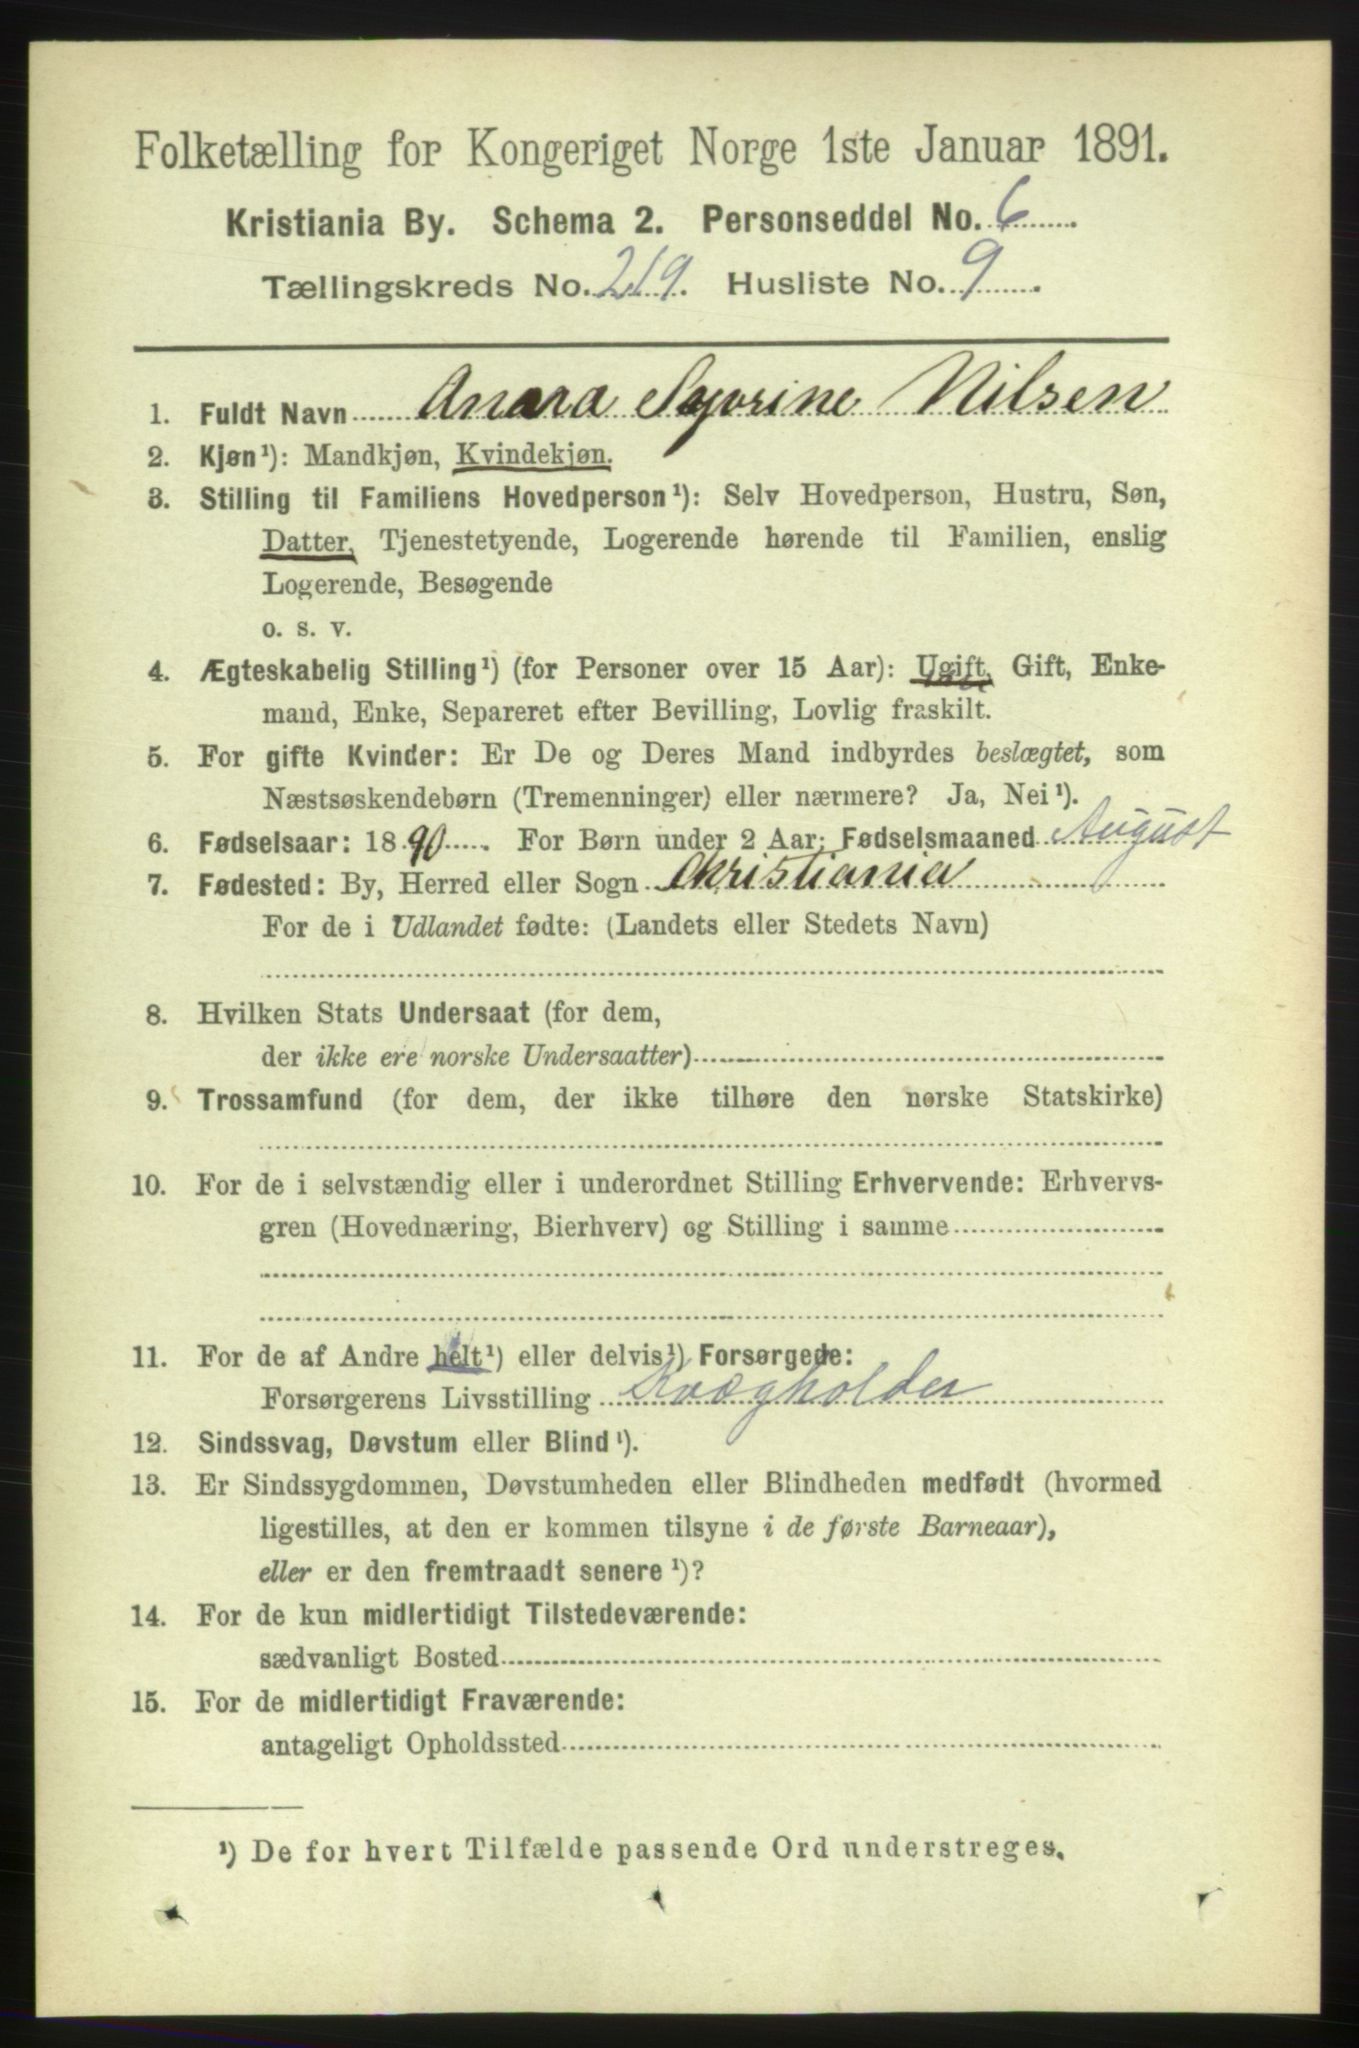 Folketælling for Kongeriget Norge 1ste Januar 1891.
Kristiania By. Schema 2. Personseddel No. 6
Tællingskreds No. 219. Husliste No. 9
1. Fuldt Navn Nilsen
2. Kjøn¹): Mandkjøn, Kvindekjøn.
3. Stilling til Familiens Hovedperson¹): Selv Hovedperson, Hustru, Søn,
Datter, Tjenestetyende, Logerende hørende til Familien, enslig
Logerende, Besøgende
o. s. v.
4. Ægteskabelig Stilling¹) (for Personer over 15 Aar): Ugift, Gift, Enke-
mand, Enke, Separeret efter Bevilling, Lovlig fraskilt.
5. For gifte Kvinder: Er De og Deres Mand indbyrdes beslægtet, som
Næstsøskendebørn (Tremenninger) eller nærmere? Ja, Nei¹).
6. Fødselsaar: 1890. For Børn under 2 Aar: Fødselsmaaned August
7. Fødested: By, Herred eller Sogn Christiania
For de i Udlandet fødte: (Landets eller Stedets Navn)
8. Hvilken Stats Undersaat (for dem,
der ikke ere norske Undersaatter)
9. Trossamfund (for dem, der ikke tilhøre den norske Statskirke)
10. For de i selvstændig eller i underordnet Stilling Erhvervende: Erhvervs-
gren (Hovednæring, Bierhverv) og Stilling i samme
11. For de af Andre helt¹) eller delvis¹) Forsørgede:
Forsørgerens Livsstilling Kvægholder
12. Sindssvag, Døvstum eller Blind¹).
13. Er Sindssygdommen, Døvstumheden eller Blindheden medfødt (hvormed
ligestilles, at den er kommen tilsyne i de første Barneaar),
eller er den fremtraadt senere¹)?
14. For de kun midlertidigt Tilstedeværende:
sædvanligt Bosted
15. For de midlertidigt Fraværende:
antageligt Opholdssted
¹) De for hvert Tilfælde passende Ord understreges.